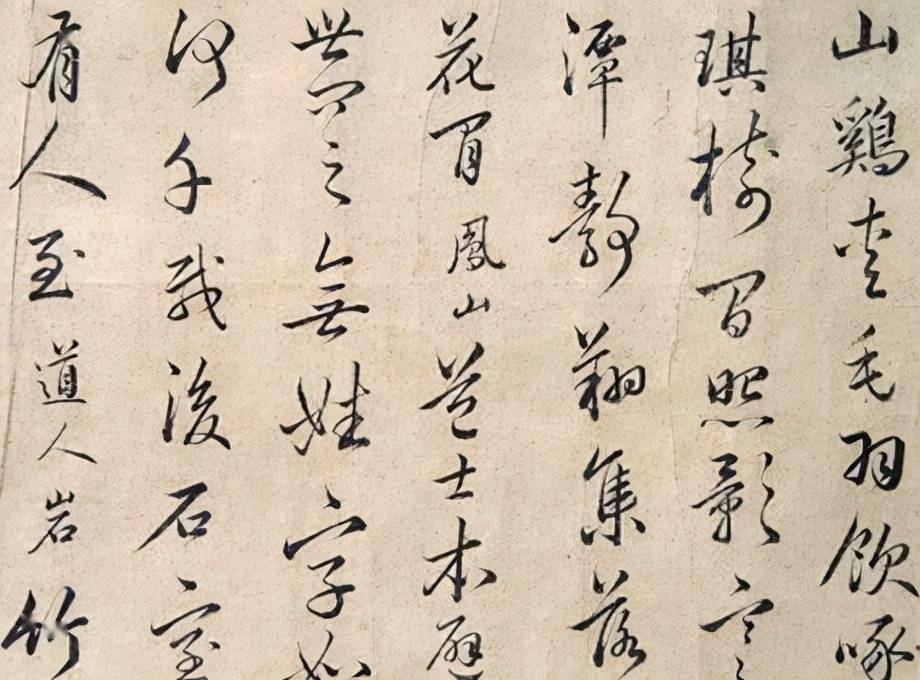 山鷄愛毛羽飲啄
琪樹間照影寒
潭靜翔集落
花間鳳山道士本避
世問之無姓字如
何千載後石室
有人至道人岩竹